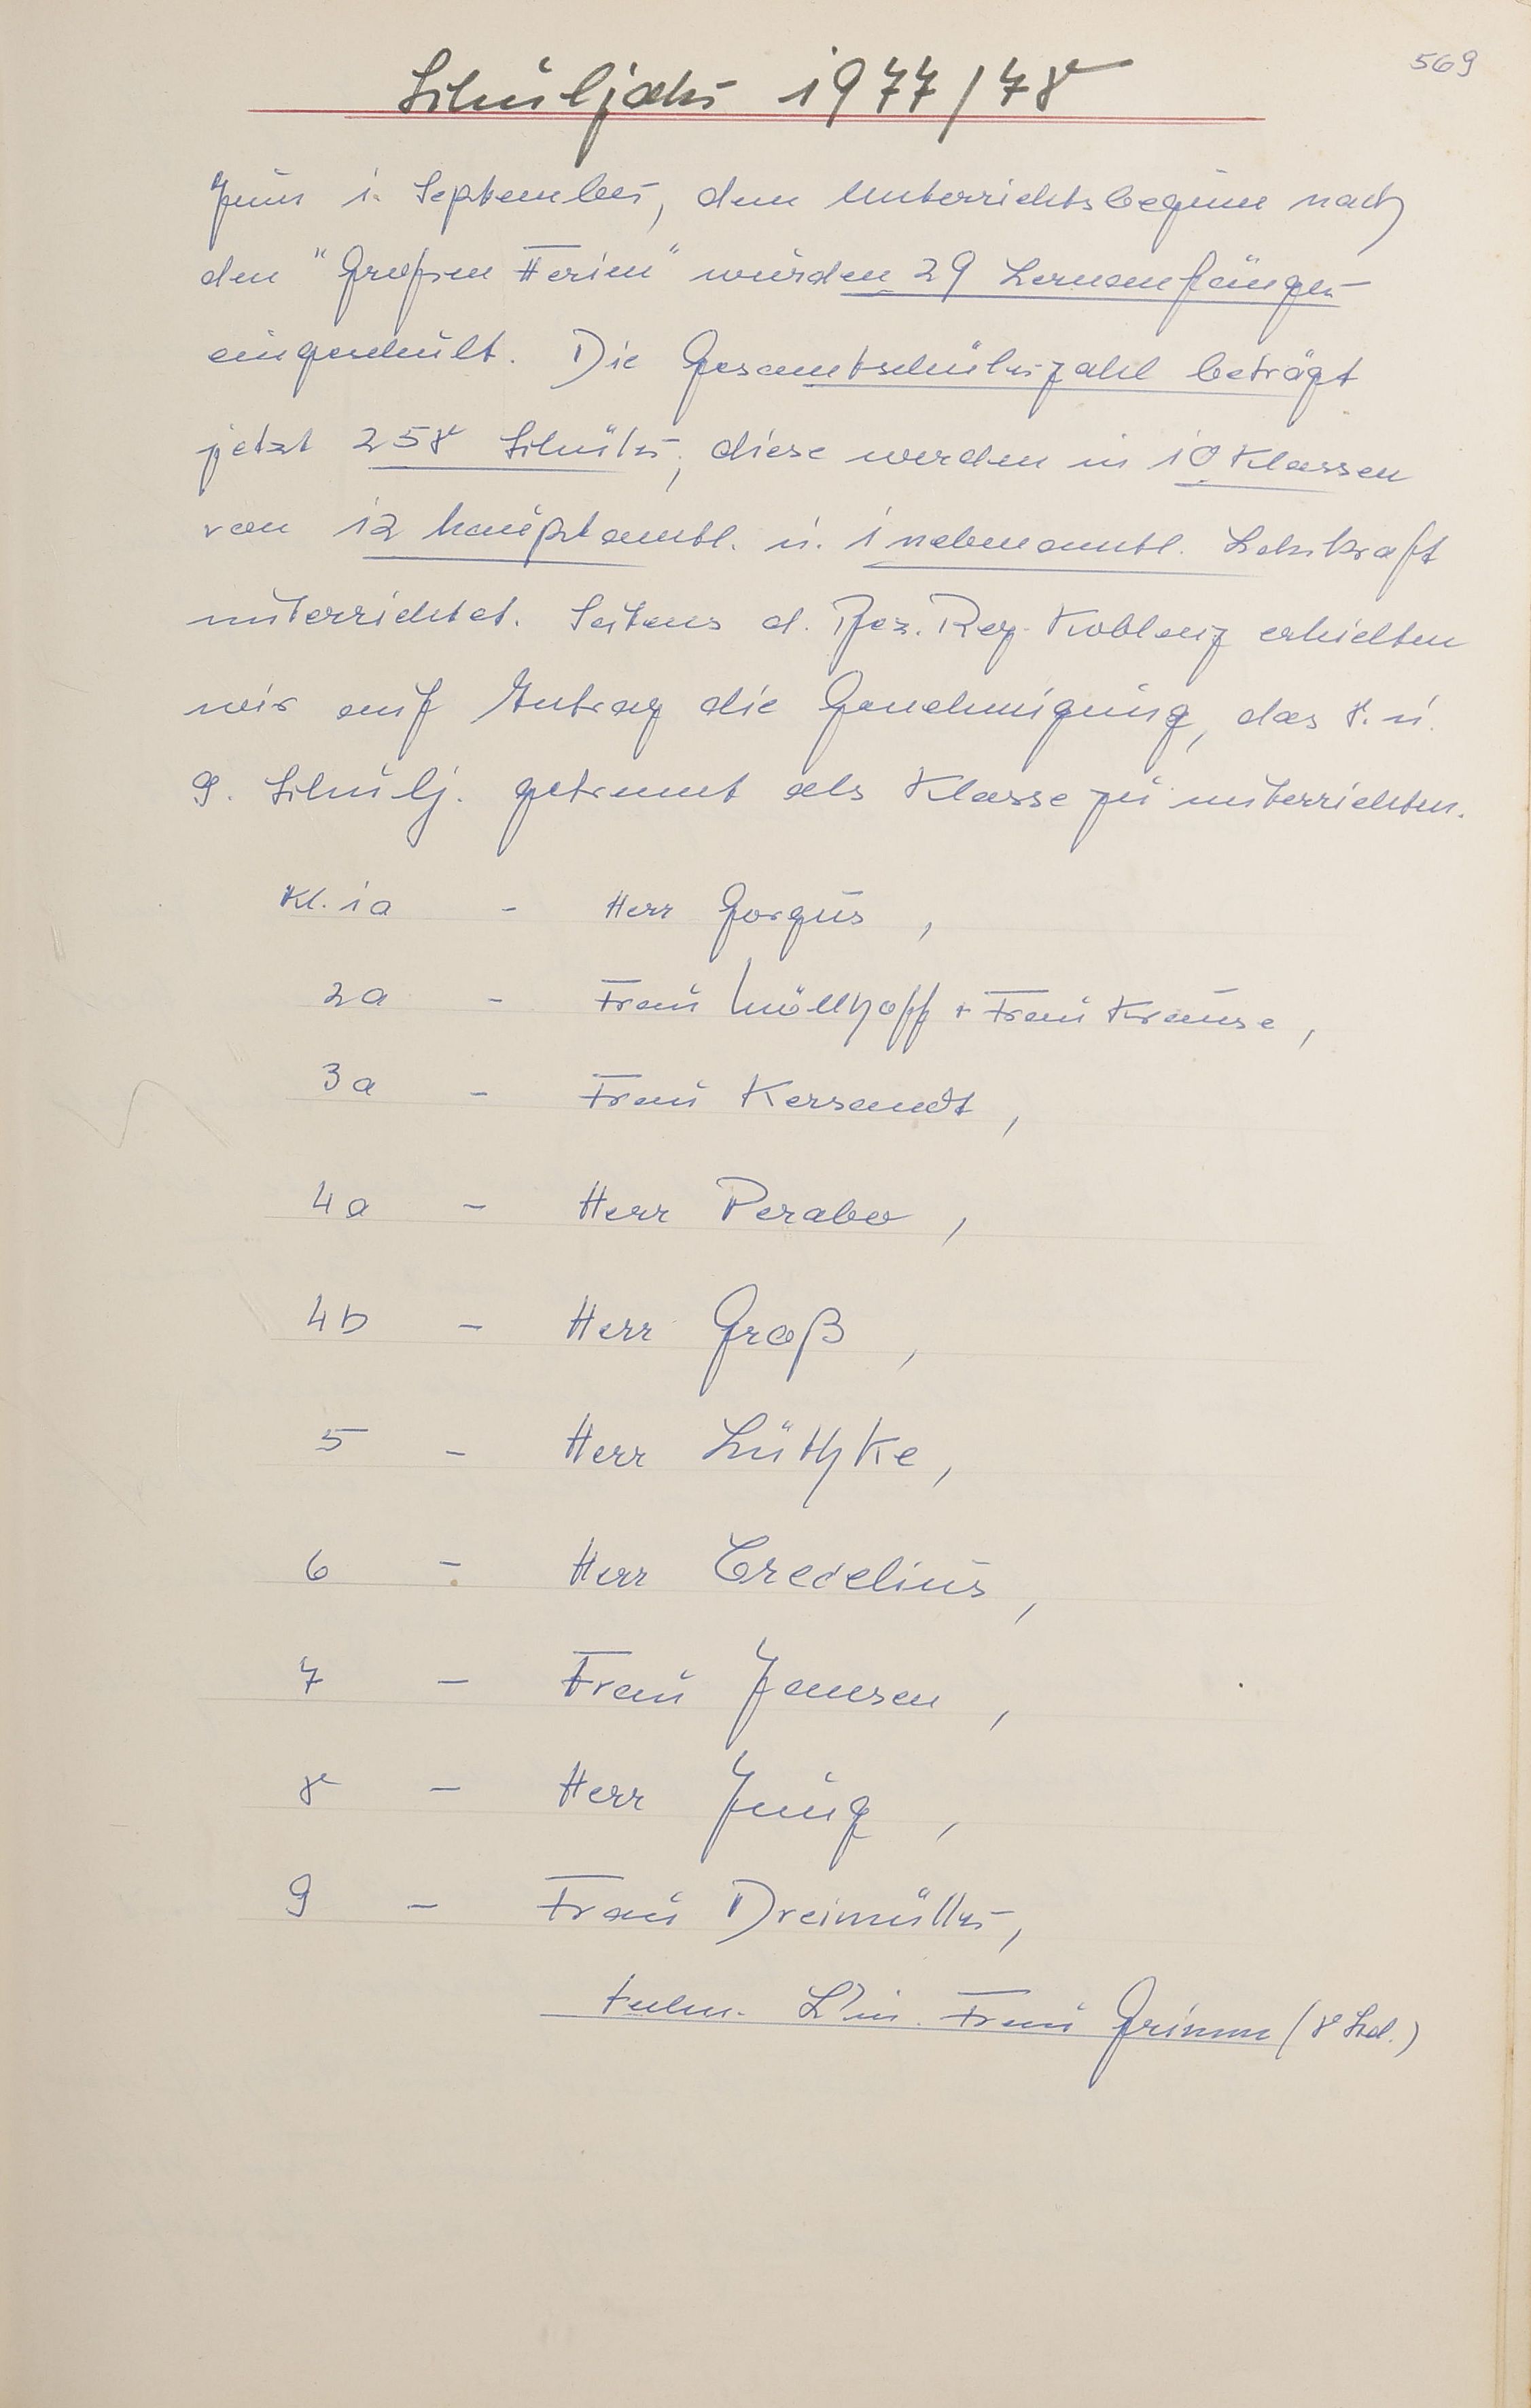 569
Schuljahr 1977/78
Zum 1. September, dem Unterrichtsbeginn nach
den "Großen Ferien" wurden 29 Lernanfänger
eingeschult. Die Gesamtschülerzahl beträgt
jetzt 258 Schüler, diese werden in 10 Klassen
von 12 hauptamtl. u. 1 nebenamtl. Lehrkraft
unterrichtet. Seitens d. Bez. Reg. Koblenz erhielten
wir auf Antrag die Genehmigung, das 8. u.
9. Schulj. getrennt als Klasse zu unterrichten.
Kl. 1a - Herr Gorgus,
2a - Frau Möllhoff + Frau Krause,
3a - Frau Kersandt,
4a - Herr Perabo,
4b - Herr Groß,
5 - Herr Lüthke,
6 - Herr Crecelius,
7 - Frau Jansen,
8 - Herr Jung,
9 - Frau Dreimüller,
techn. L'in. Frau Grimm (8 Std.)